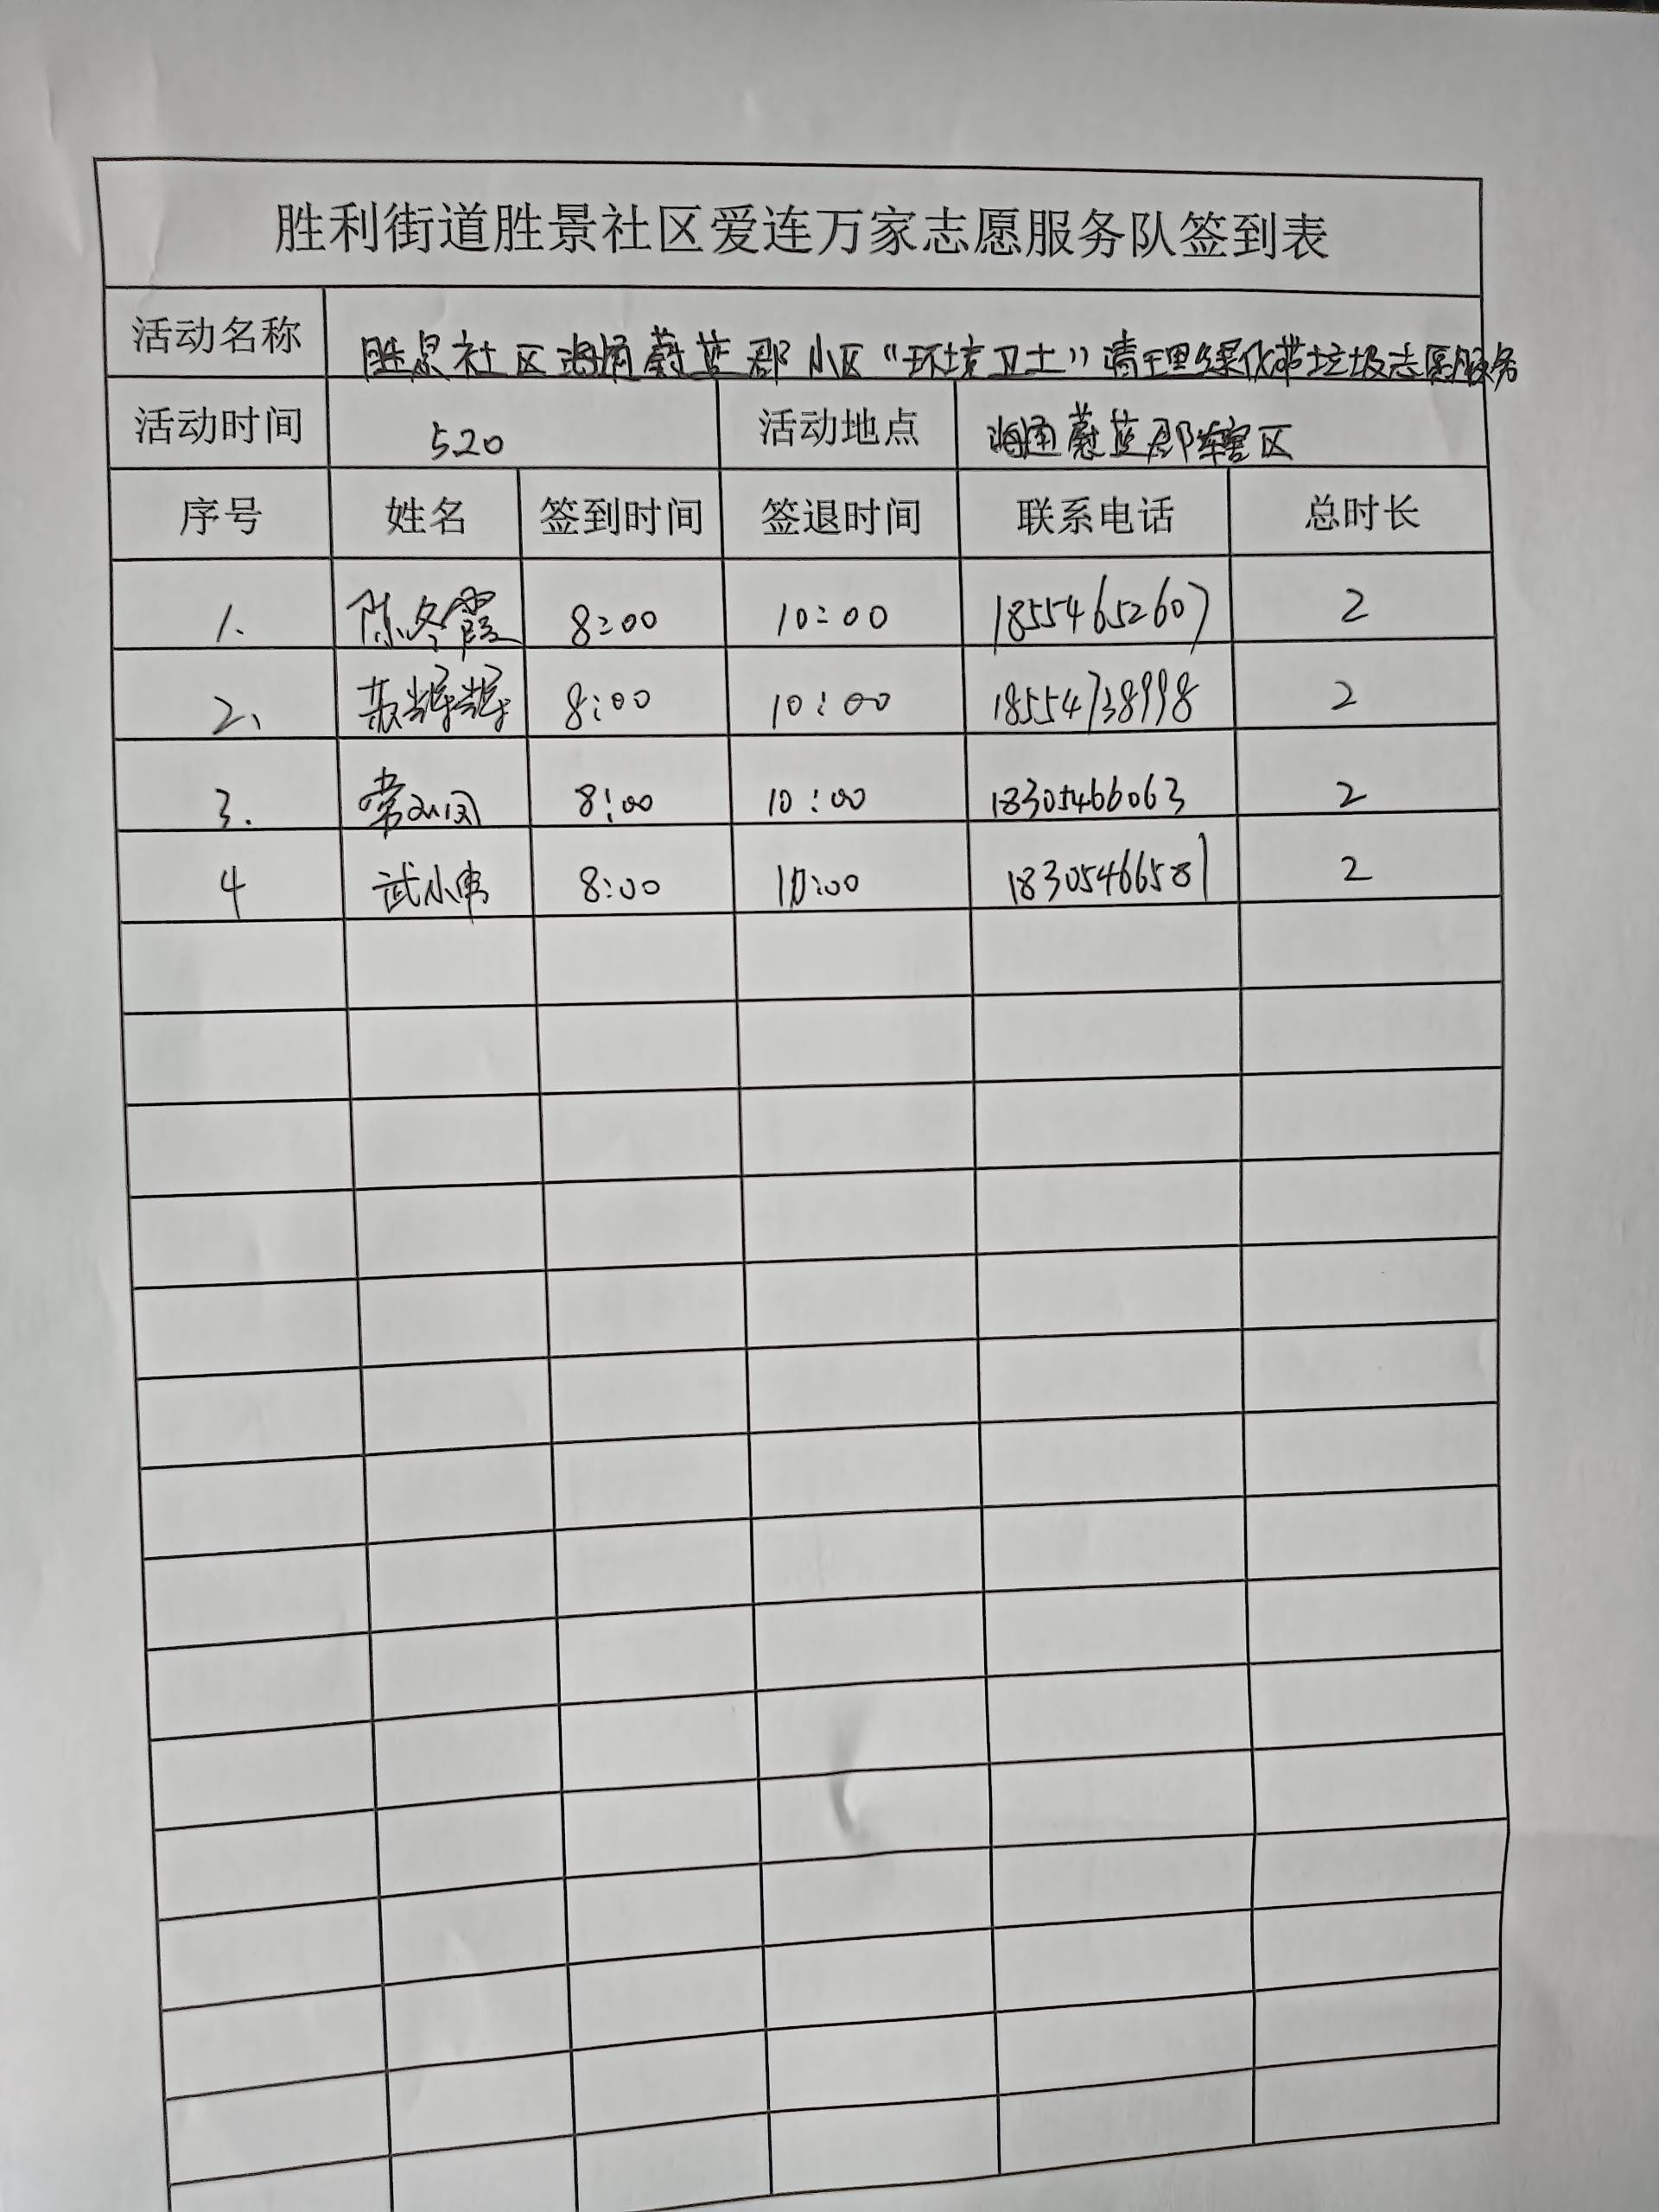 胜利街道胜景社区爱连万家志愿服务队签到表
活动名称 胜景社区海通蔚蓝郡小区“环境卫士”清理绿化带垃圾志愿服务
活动时间 5.20 活动地点 海通蔚蓝郡辖区
序号 姓名 签到时间 签退时间 联系电话 总时长
1. 陈冬霞 8:00 10:00 18554652607 2
2、 苏辉辉 8:00 10:00 18554738998 2
3. 常 8:00 10:00 18305466063 2
4 武小 8:00 10:00 18305466581 2